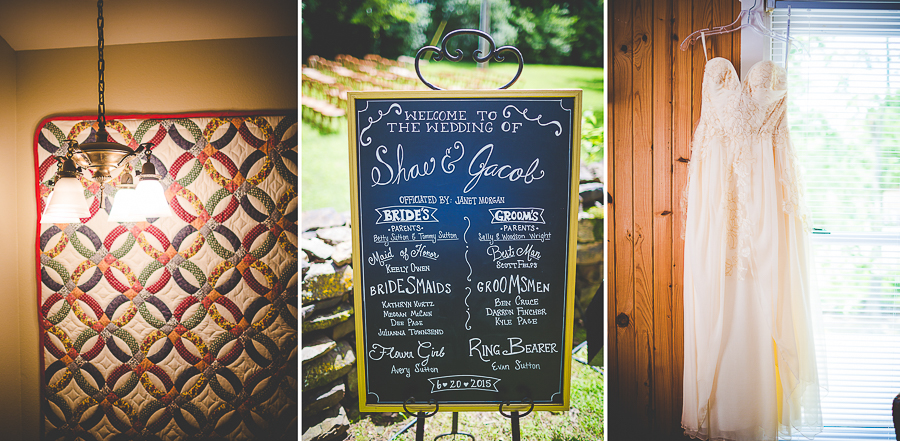 WELCOME TO
THE WEDDING OF
Shae & Jacob
OFFICIATED BY: JANET MORGAN
BRIDE'S
•PARENTS•
Betty Sutton & Tommy Sutton
Maid of Honor
KEELY OWEN
BRIDESMAIDS
KATHRYN KURTZ
MEGGAN MCCAIN
DEE PAGE
JULIANNA TOWNSEND
Flower Girl
AVERY SUTTON
GROOM'S
•PARENTS•
Sally & Woodson Wright
Best Man
SCOTT FELPS
GROOMSMEN
BEN CRUCE
DARRON FINCHER
KYLE PAGE
RING BEARER
EVAN SUTTON
6♥20♥2015